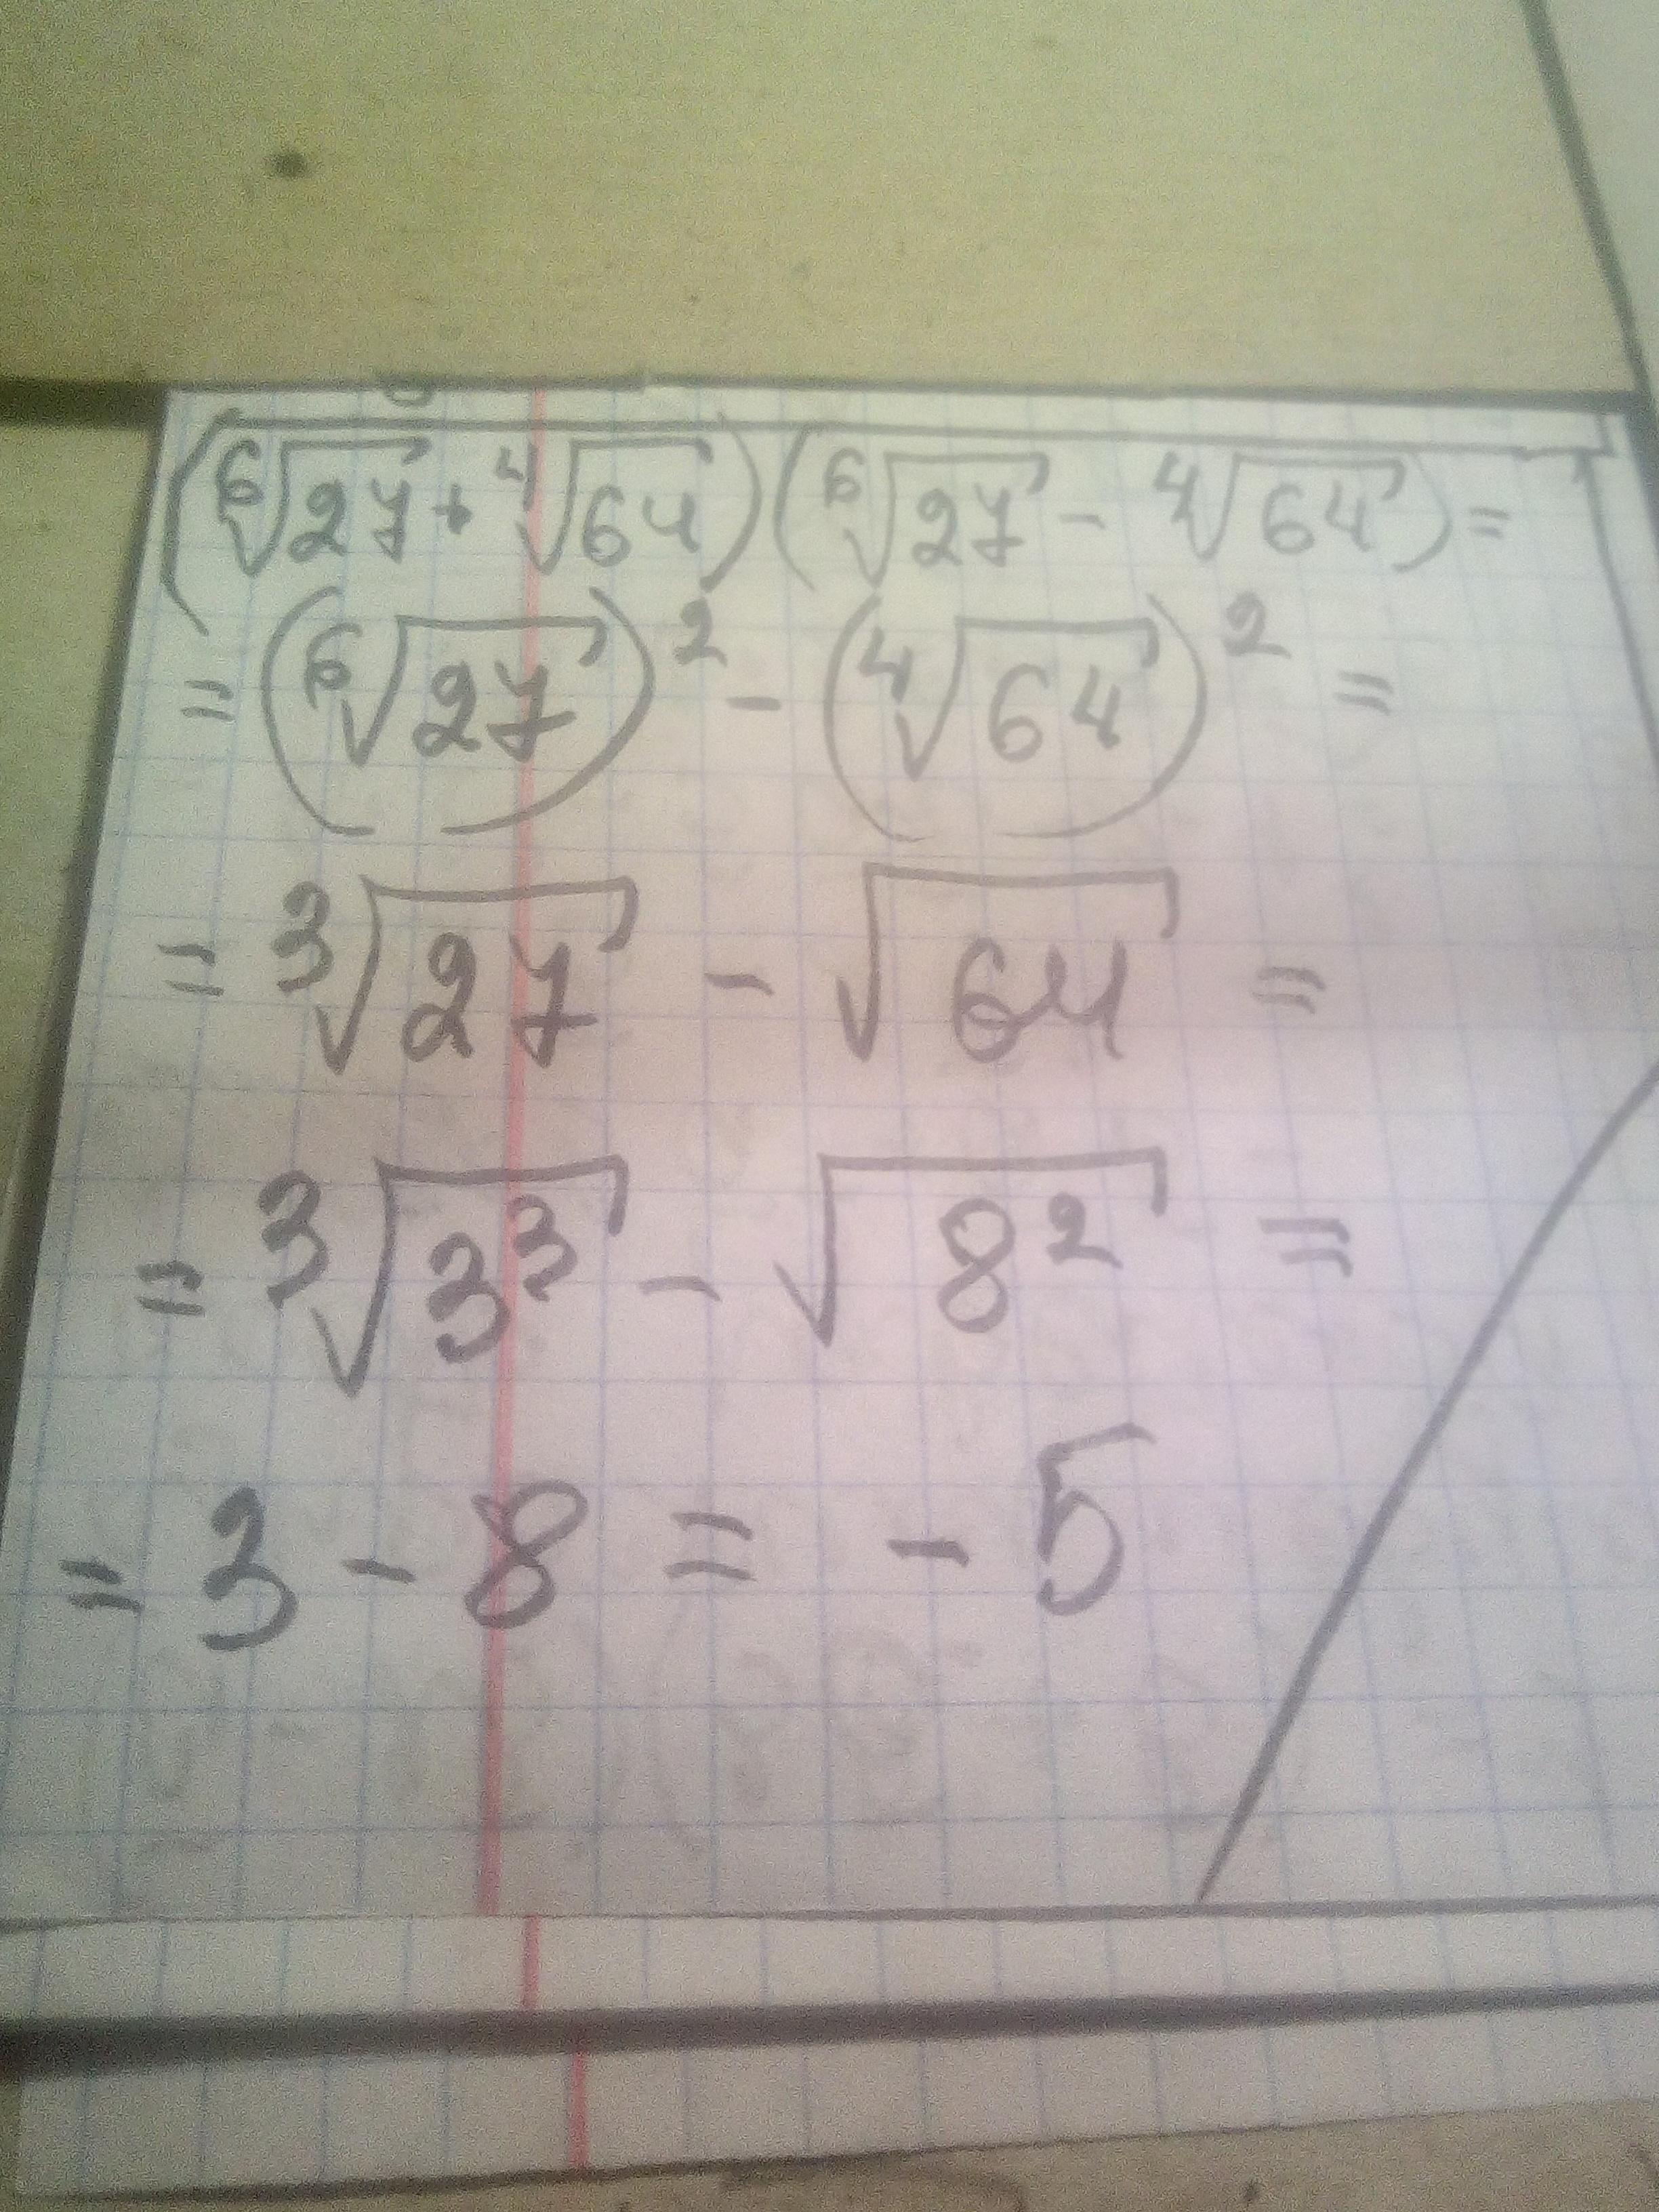 (⁶√27 + ⁴√64)(⁶√27 - ⁴√64) =
= (⁶√27)² - (⁴√64)² =
= ³√27 - √64 =
= ³√3³ - √8² =
= 3 - 8 = - 5